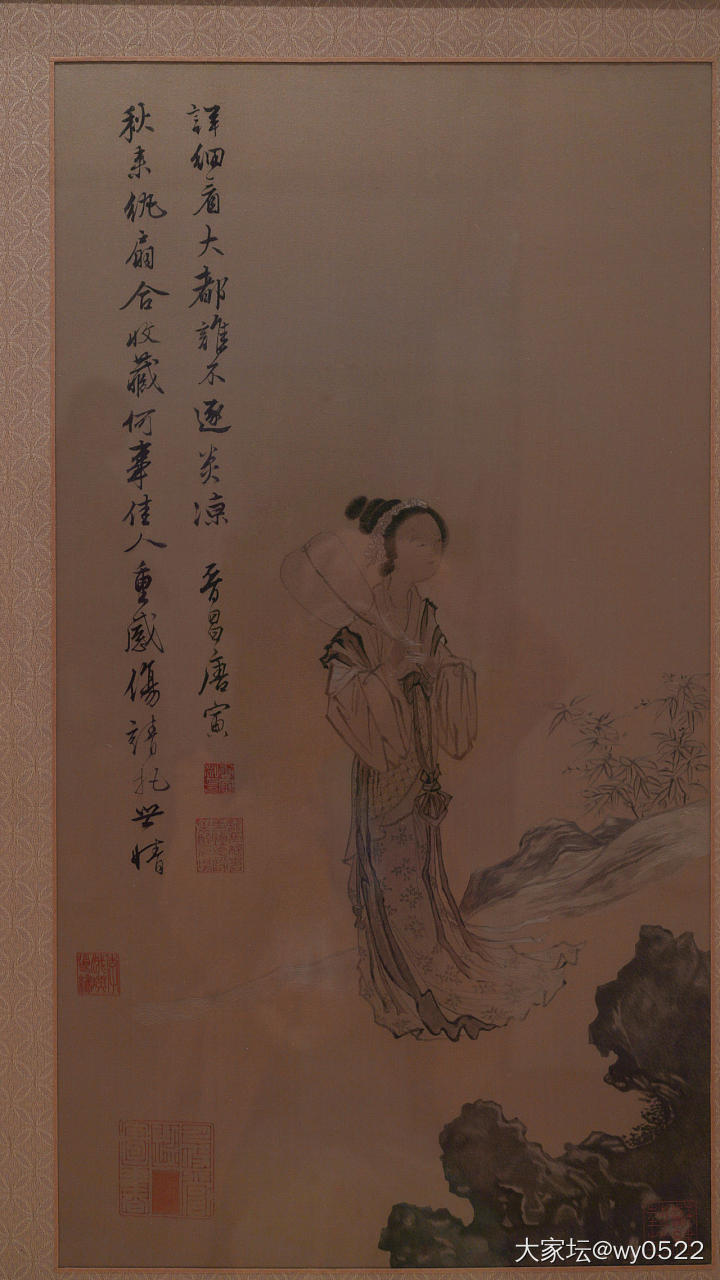 秋来紈扇合收藏何事佳人重感傷請把世情
詳細看大都誰不逐炎凉 晋昌唐寅
大家坛@wy0522